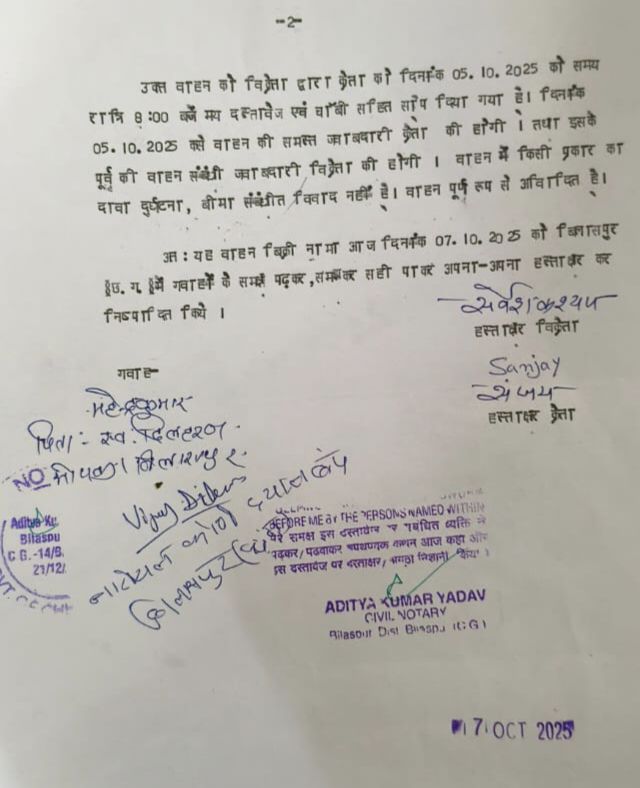 --2--
उक्त वाहन को विक्रेता द्वारा क्रेता को दिनांक 05.10.2025 को समय
रात्रि 8:00 बजे मय दस्तावेज एवं चाॅबी सहित सौंप दिया गया है। दिनांक
05.10.2025 कसे वाहन की समस्त जवाबदारी क्रेता की होगी । तथा इसके
पूर्व की वाहन संबंधी जवाबदारी विक्रेता की होगी । वाहन में किसी प्रकार का
दावा दुर्घटना, बीमा संबंधीत विवाद नहीं है। वाहन पूर्ण रूप से अविवादित है।
अत: यह वाहन बिक्री नामा आज दिनांक 07.10.2025 को बिलासपुर
छ.ग. में गवाहों के समक्ष पढ़कर,समझकर सही पाकर अपना-अपना हस्ताक्षर कर
निष्पादित किये ।
सर्वेश कश्यप
हस्ताक्षर विक्रेता
Sanjay
संजय
हस्ताक्षर क्रेता
गवाह-
महेन्द्र कुमार
पिता:- स्व. दिलहरण
मोपका बिलासपुर
NO
Aditya Ku
Bilaspu
C G.-14/
21/12/
Vijay
बिलासपुर
BEFORE ME BY THE PERSONS NAMED WITHIN
मेरे समक्ष इस दस्तावेज पर व्यक्ति ने
पढ़कर/पढवाकर शपथपूर्वक कथन आज कहा और
इस दस्तावेज पर हस्ताक्षर/अंगूठा निशानी किया।
ADITYA KUMAR YADAV
CIVIL NOTARY
Bilaspur Dist Bilaspur (C G)
7 OCT 2025